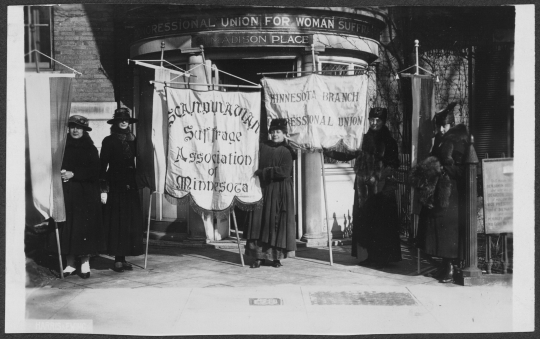 RESSIONAL UNION FOR WOMAN SUFF
ADISON PLACE
Scandinavian
Suffrage
Association
of
Minnesota
MINNESOTA BRANCH
RESSIONAL UNION